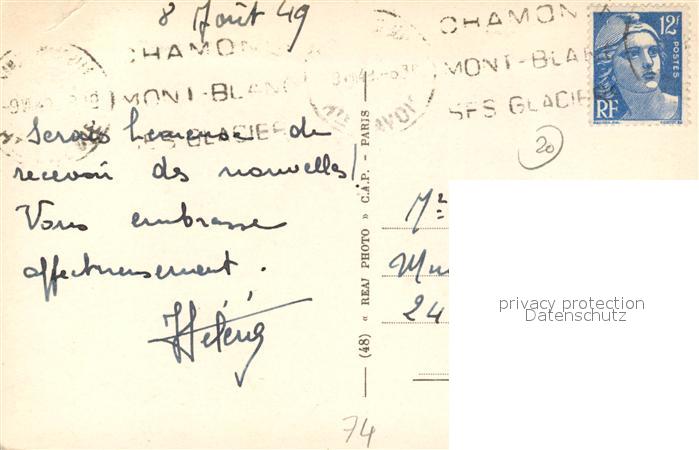 8 Août 49
CHAMONIX
MONT-BLANC
SES GLACIERS
CHAMONIX
MONT-BLANC
SES GLACIERS
12F
POSTES
RF
20
Serais heureuse de
recevoir des nouvelles!
Vous embrasse
affectueusement.
Hélène
(48) « REAJ PHOTO » C.A.P. - PARIS
Mr
24
privacy protection
Datenschutz
74